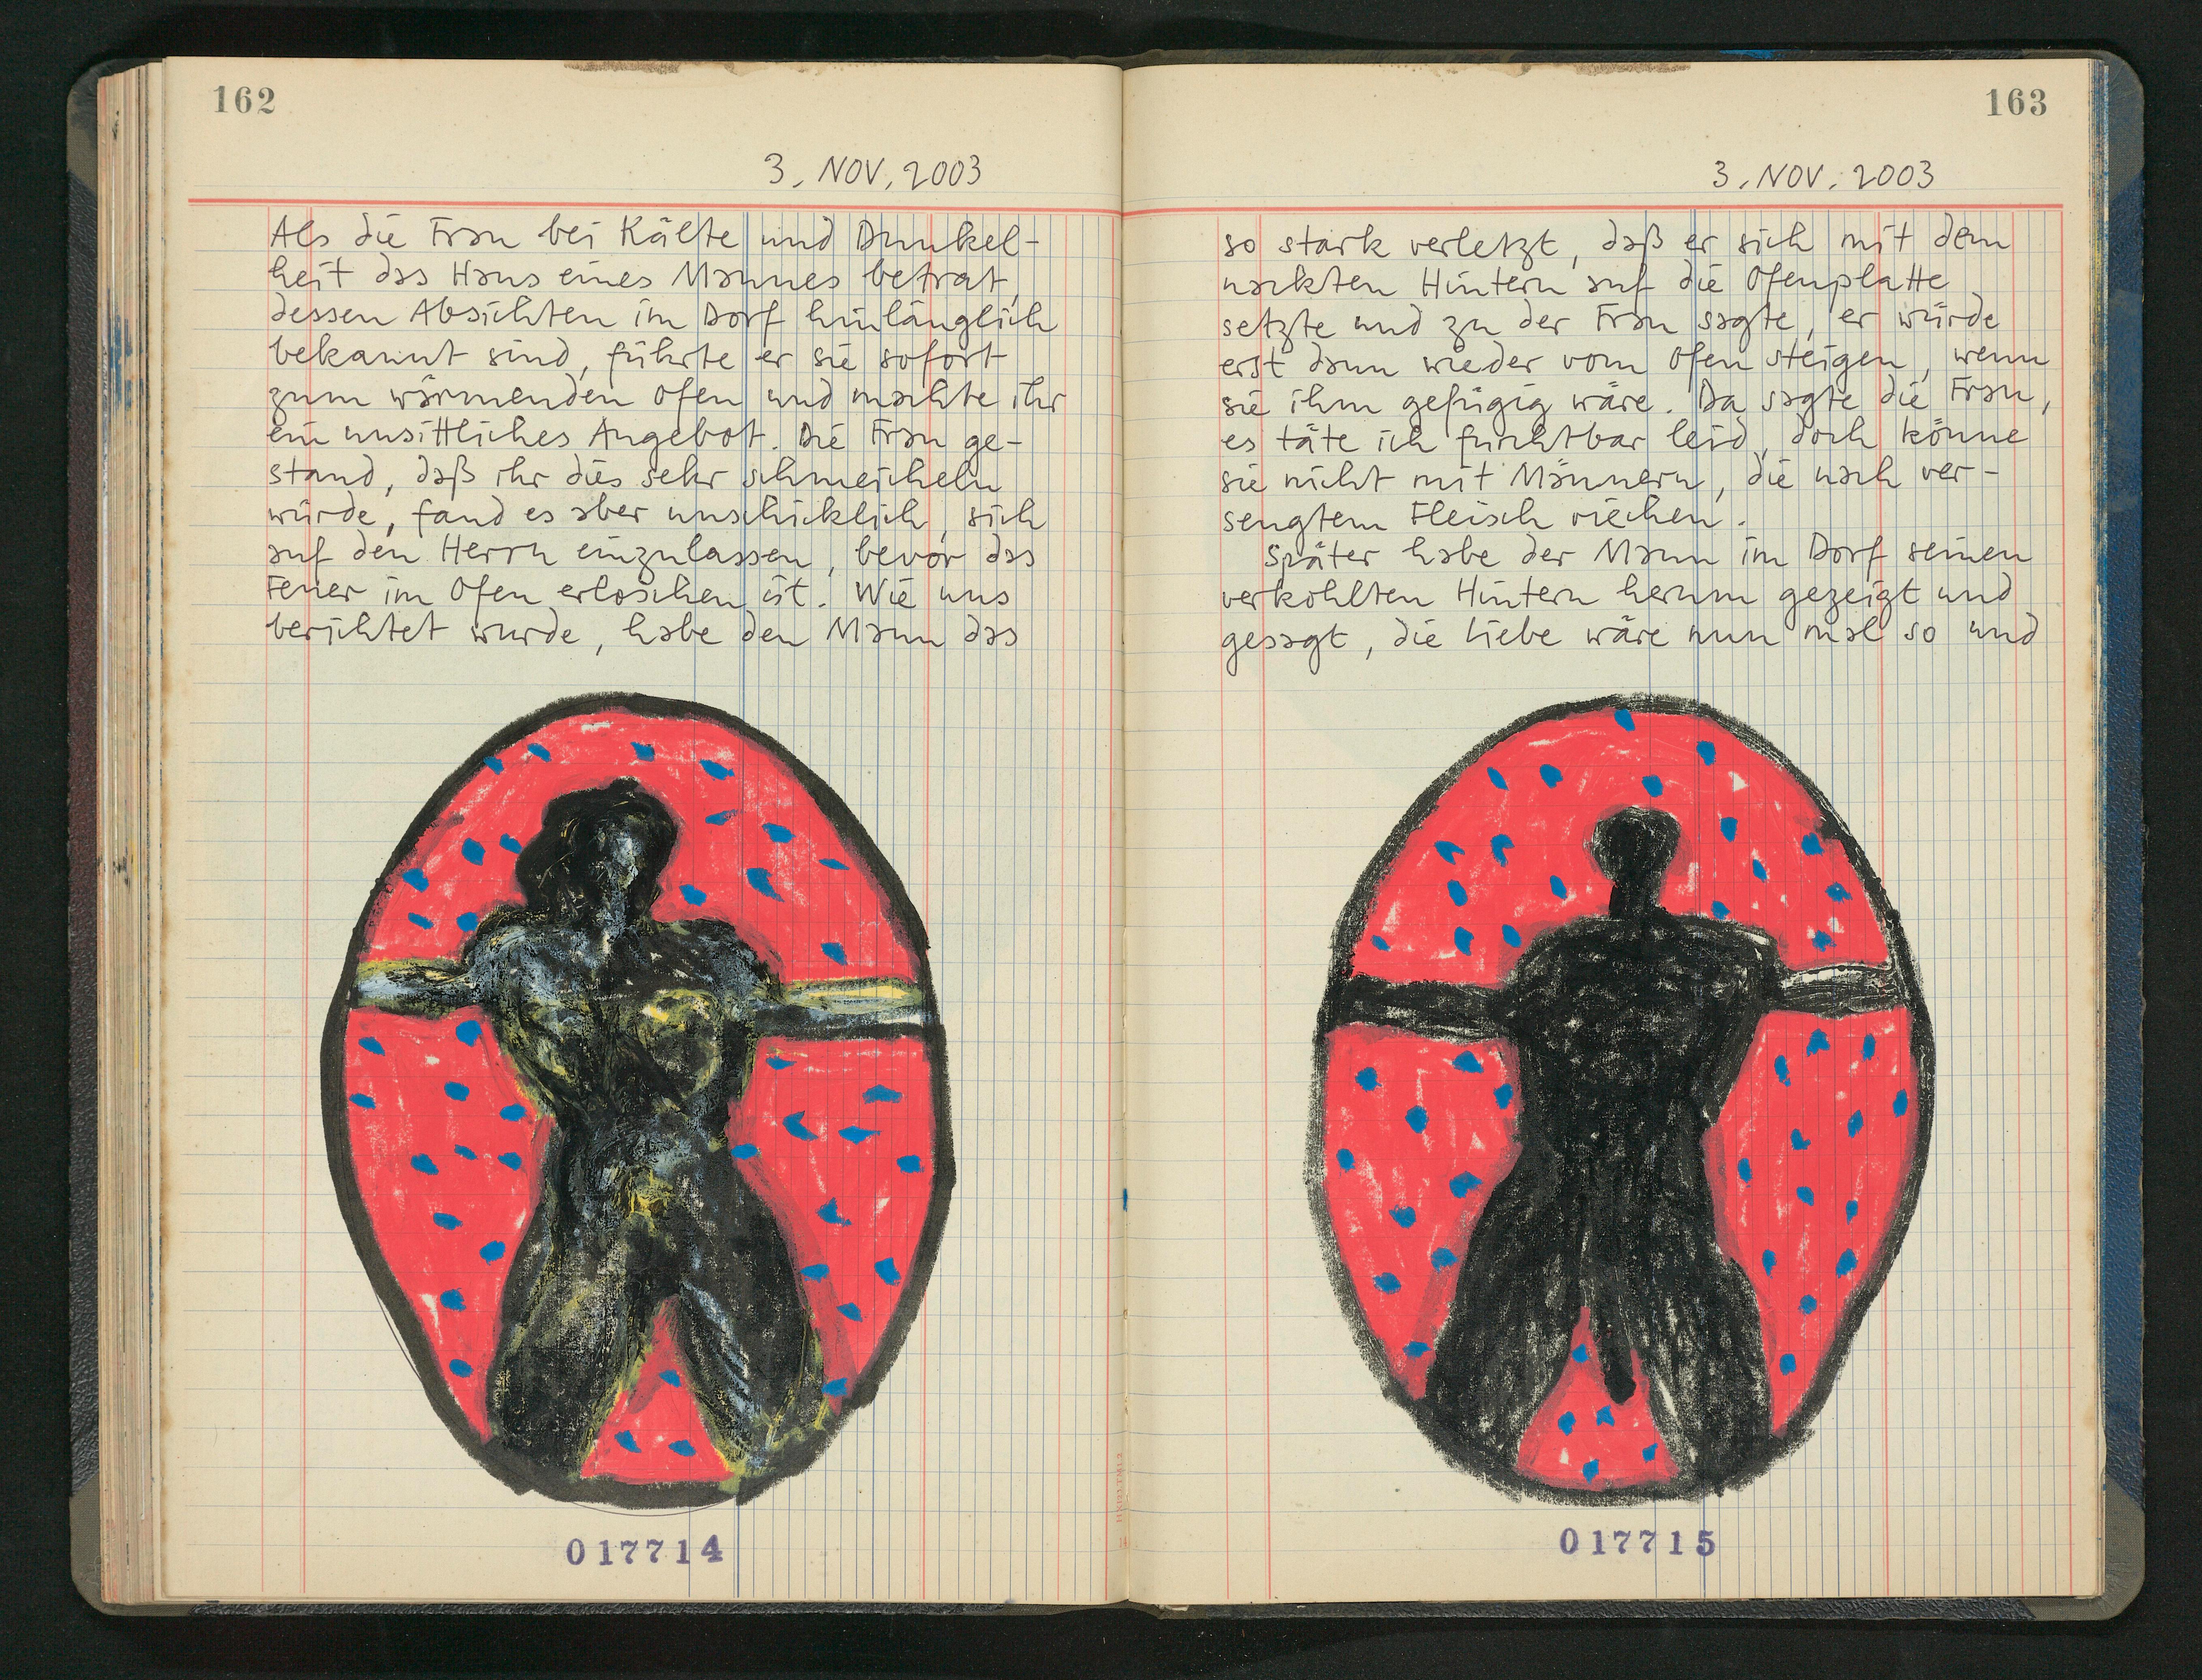 162
3. NOV. 2003
Als die Frau bei Kälte und Dunkel-
heit das Haus eines Mannes betrat,
dessen Absichten im Dorf hinlänglich
bekannt sind, führte er sie sofort
zum wärmenden Ofen und machte ihr
ein unsittliches Angebot. Die Frau ge-
stand, daß ihr dies sehr schmeicheln
würde, fand es aber unschicklich, sich
auf den Herrn einzulassen, bevor das
Feuer im Ofen erloschen ist. Wie uns
berichtet wurde, habe den Mann das
017714
163
3. NOV. 2003
so stark verletzt, daß er sich mit dem
nackten Hintern auf die Ofenplatte
setzte und zu der Frau sagte, er würde
erst dann wieder vom Ofen steigen, wenn
sie ihm gefügig wäre. Da sagte die Frau,
es täte ich furchtbar leid, doch könne
sie nicht mit Männern, die nach ver-
sengtem Fleisch riechen.
Später habe der Mann im Dorf seinen
verkohlten Hintern herum gezeigt und
gesagt, die Liebe wäre nun mal so und
017715